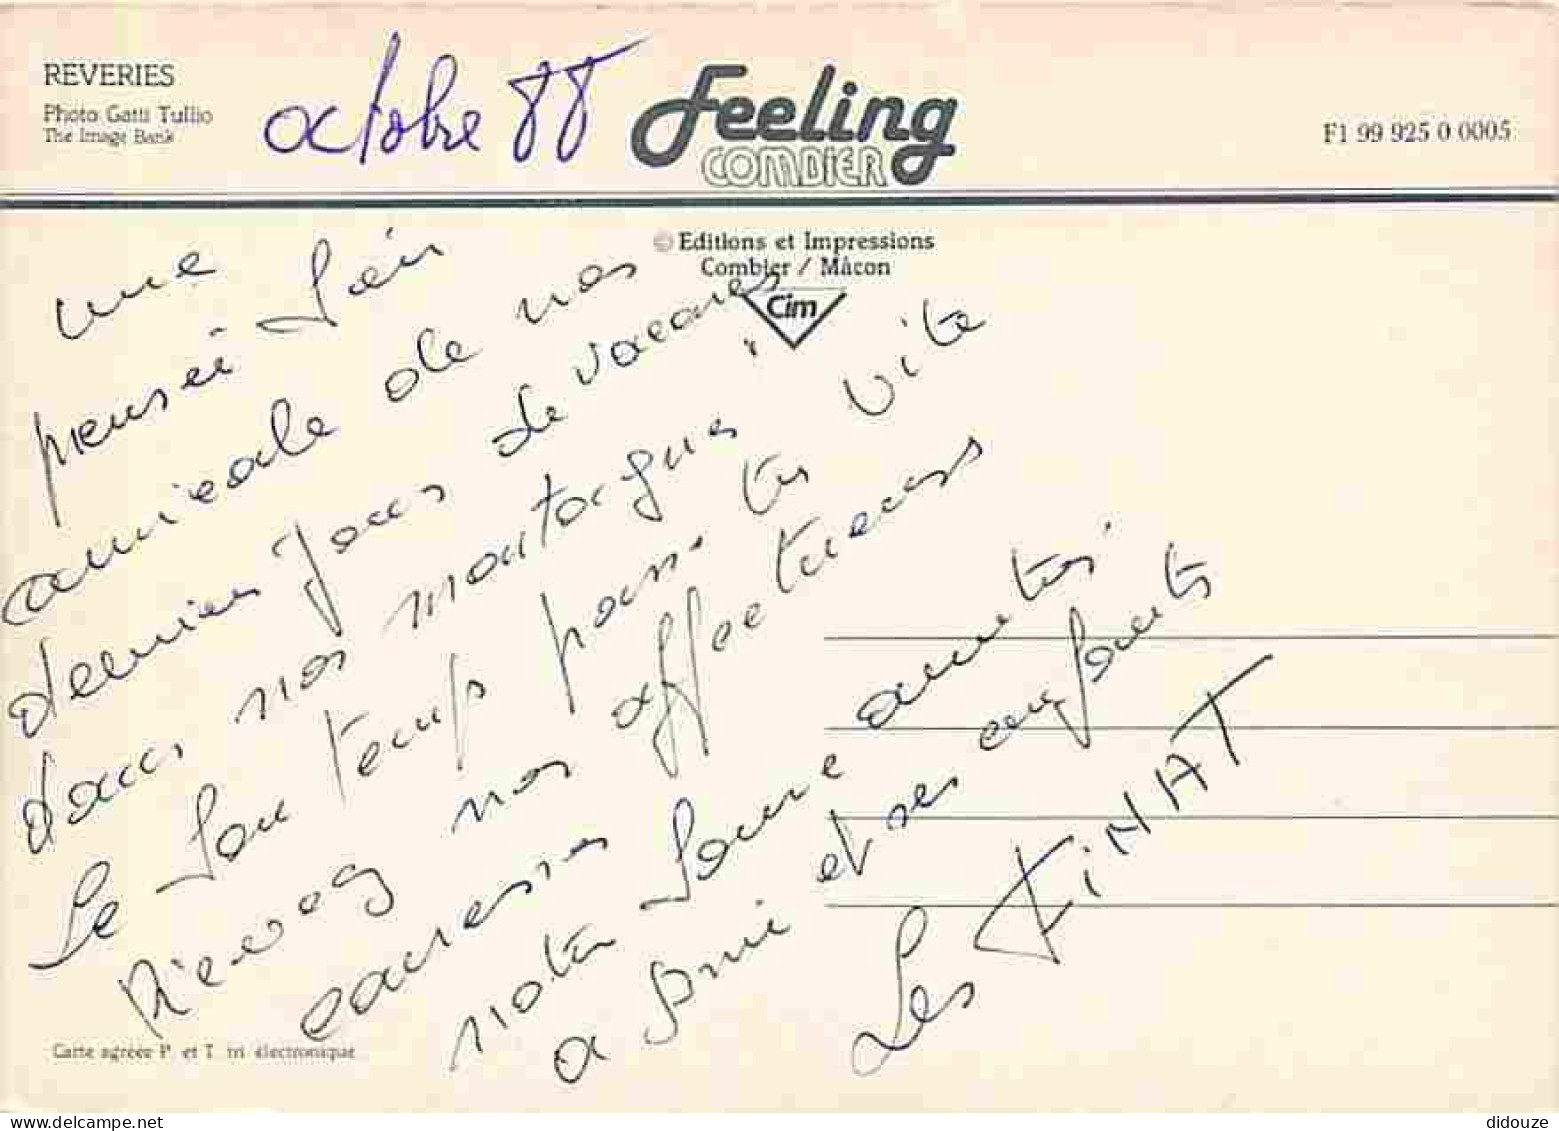 REVERIES
Photo Gatti Tullio
The Image Bank
octobre 88
Feeling
COMBIER
F1 99 925 0 0005
© Editions et Impressions
Combier / Mâcon
Cim
une
pensée bien
amicale de nos
derniers jours de vacances
dans nos montagnes
Le bon temps passe très vite
Recevez nos affectueuses
caresses
notre bonne amitié
a
et ses enfants
Les FINAT
Carte agréée P. et T. tri électronique
didouze